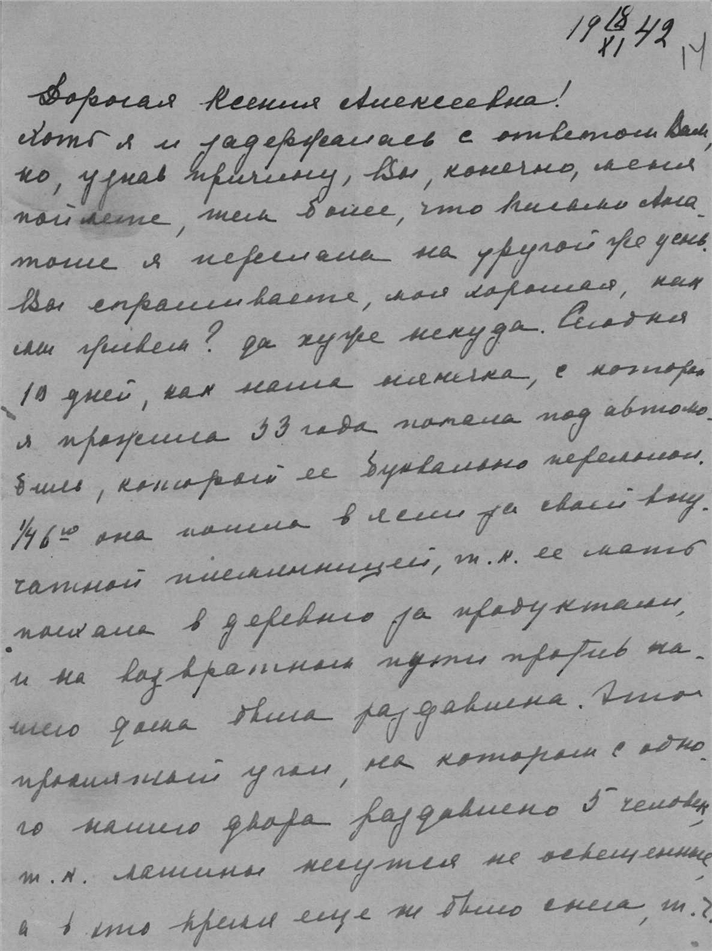 19 18/XI 42
14
Дорогая Ксения Алексеевна!
Хоть я и задержалась с ответом Вам,
но, узнав причину, Вы, конечно, меня
поймете, тем более, что письмо Ана-
тоше я переслала на другой же день.
Вы спрашиваете, моя хорошая, как
мы живем? да хуже некуда. Сегодня
10 дней, как наша нянечка, с которой
я прожила 33 года попала под автомо-
биль, который ее буквально переломал.
она пошла в ясли за своей вну-
чатной племянницей, т.к. ее мать
поехала в деревню за продуктами,
и на возвратном пути против на-
шего дома была раздавлена. Это
проклятый угол, на котором с одно-
го нашего двора раздавлено 5 человек,
т.к. машины несутся не освещенные,
а в это время еще не было снега, т.ч.